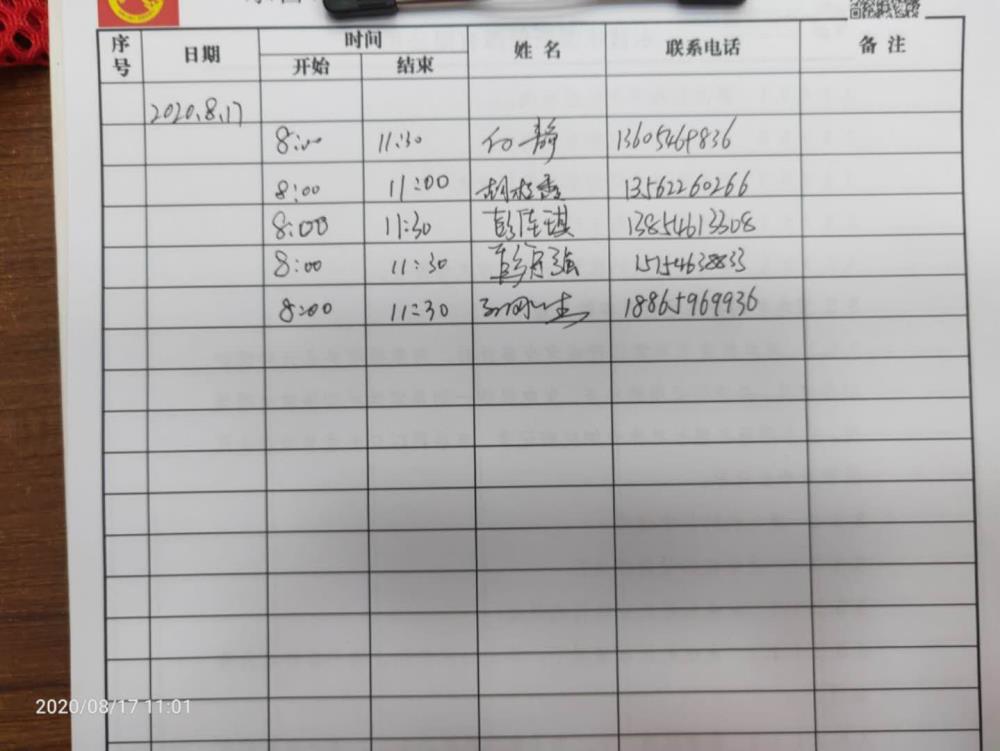 序号 日期 时间 姓名 联系电话 备注
开始 结束
2020.8.17
8:00 11:30 付静 13605469836
8:00 11:00 胡 13562260266
8:00 11:30 彭 琪 13854613308
8:00 11:30 强 15154638833
8:00 11:30 18865969936
2020/08/17 11:01